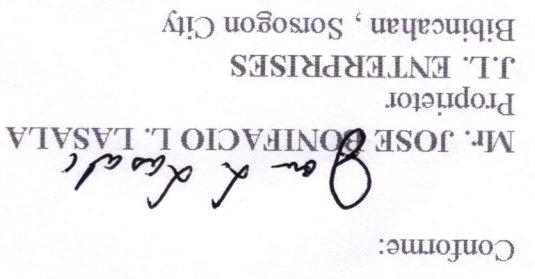 Conforme:
Mr. JOSE BONIFACIO L. LASALA
Proprietor
J.L. ENTERPRISES
Bibincahan , Sorsogon City